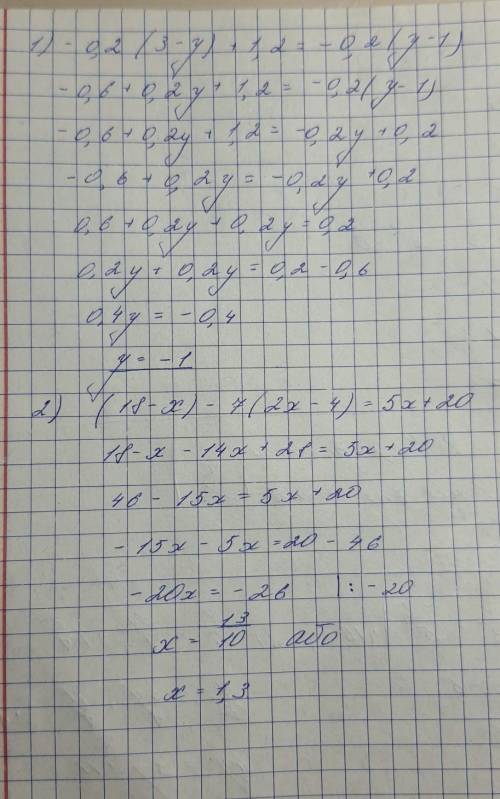 1) -0,2 (3-y) + 1,2 = -0,2 (y-1)
-0,6 + 0,2y + 1,2 = -0,2 (y-1)
-0,6 + 0,2y + 1,2 = -0,2y + 0,2
-0,6 + 0,2y = -0,2y + 0,2
0,6 + 0,2y + 0,2y = 0,2
0,2y + 0,2y = 0,2 - 0,6
0,4y = -0,4
y = -1
2) (18-x) - 7(2x-4) = 5x+20
18-x - 14x + 28 = 5x + 20
46 - 15x = 5x + 20
-15x - 5x = 20 - 46
-20x = -26 | : -20
x = 13/10 або
x = 1,3